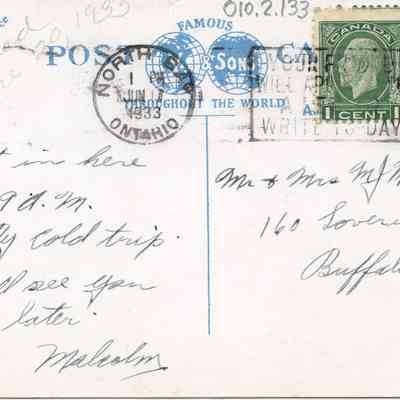 1933
010.2.133
FAMOUS
POST CA
& SONS
THROUGHOUT THE WORLD
NORTH BAY
1 PM
JUN
1933
ONTARIO
CANADA
1 CENT 1
WRITE TO-DAY
t in here
9 A.M.
ly cold trip.
see you
later.
Malcolm
Mr & Mrs M
160 Lovere
Buffal